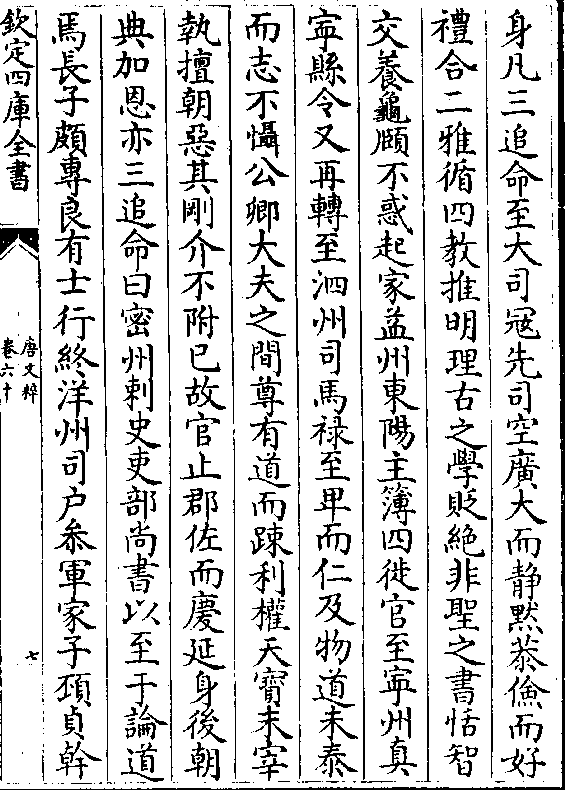 身凡三追命至大司寇先司空廣大而静黙恭儉而好
禮合二雅循四教推明理古之學貶絶非聖之書恬智
交養龜願不惑起家益州東陽主簿四徙官至寧州真
寧縣令又再轉至泗州司馬禄至卑而仁及物道未泰
而志不懾公卿大夫之間尊有道而踈利權天寳末宰
執擅朝惡其剛介不附已故官止郡佐而慶延身後朝
典加恩亦三追命曰密州刺史吏部尚書以至于論道
馬長子頗專良有士行終洋州司户叅軍冢子頎貞幹
欽定四庫全書
唐文粹
卷六十
七